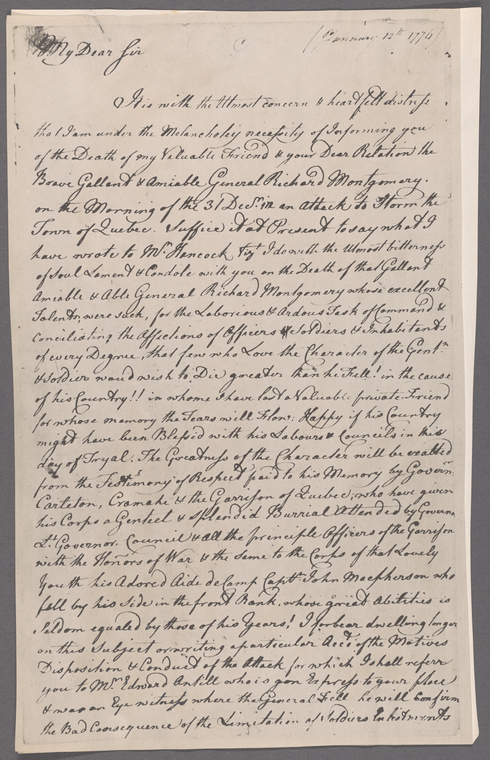 (January 12th 1776)
My Dear Sir
It is with the Utmost concern & heart felt distress
that I am under the Melancholey necessity of Informing you
of the Death of my Valuable Friend & your Dear Relation the
Brave Gallant & Amiable General Richard Montgomery.
on the Morning of the 31 Decr. in an Attack to Storm the
Town of Quebec. Suffice it at Present to say what I
have wrote to Mr. Hancock I do with the Utmost bitterness
of Soul Lament & Condole with you on the Death of that Gallant
Amiable & Able General Richard Montgomery whose excellent
Talents, were such, for the Laborious & Ardous Task of Command &
conciliating the Affections of Officers & Soldiers & Inhabitants
of every Degree, that few who Love the Character of the Gentn.
& Soldier would wish to Die greater than he Fell! in the cause
of his Country!! in whome I have lost a Valuable private Friend
for whose memory the Tears will Flow. Happy if his Country
might have been Blessd with his Labours & Councils in this
day of Tryal. The Greatness of the Character will be exalted
from the Testimonys of Respect paid to his Memory by Govern.
Carleton, Cramahe & the Garrison of Quebec, who have given
his Corps a Genteel & Splendid Burrial Attended by Governr.
Lt. Governor. Council & all the principle Officers of the Garrison
with the Honors of War & the same to the Corps of that Lovely
Youth his Adored Aide de Camp Captn. John Macpherson who
fell by his Side in the front Rank, whose great Abitities is
Seldom equaled by those of his Years! I forbear dwelling longer
on this Subject or writing a particular Acct. of the Motives
Disposition & Conduct of the Attack for which I shall referr
you to Mr. Edward Antill who is gon Express to your place
& was an Eye witness where the General Fell he will confirm
the Bad Consequence of the Limitation of Soldiers Inlistments